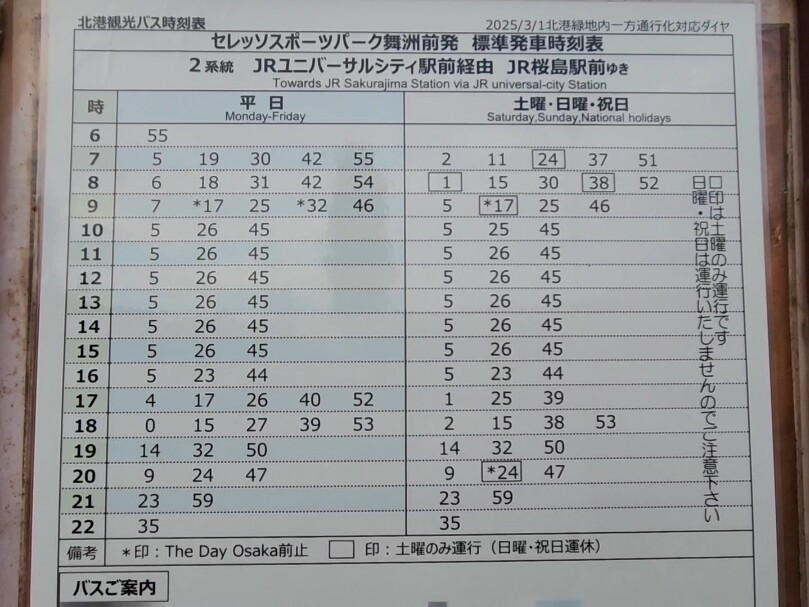 北港観光バス時刻表 2025/3/1北港緑地内一方通行化対応ダイヤ
セレッソスポーツパーク舞洲前発 標準発車時刻表
2系統 JRユニバーサルシティ駅前経由 JR桜島駅前ゆき
Towards JR Sakurajima Station via JR universal-city Station
時 平日 土曜・日曜・祝日
Monday-Friday Saturday,Sunday,National holidays
6 55
7 5 19 30 42 55 2 11 24 37 51
8 6 18 31 42 54 1 15 30 38 52
9 7 *17 25 *32 46 5 *17 25 46
10 5 26 45 5 25 45
11 5 26 45 5 26 45
12 5 26 45 5 26 45
13 5 26 45 5 26 45
14 5 26 45 5 26 45
15 5 26 45 5 26 45
16 5 23 44 5 23 44
17 4 17 26 40 52 1 25 39
18 0 15 27 39 53 2 15 38 53
19 14 32 50 14 32 50
20 9 24 47 9 *24 47
21 23 59 23 59
22 35 35
□印は土曜のみ運行です
日曜・祝日は運行いたしませんのでご注意下さい
備考 *印:The Day Osaka前止 □ 印:土曜のみ運行(日曜・祝日運休)
バスご案内